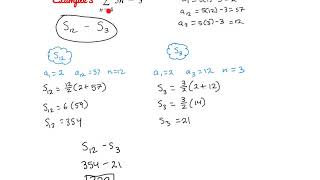 Example 3 Σ 5n - 3
a₁ = 5(1) - 3 = 2
a₁₂ = 5(12) - 3 = 57
a₃ = 5(3) - 3 = 12
S₁₂ - S₃
S₁₂
a₁=2 a₁₂=57 n=12
S₁₂ = 12/2 (2+57)
S₁₂ = 6(59)
S₁₂ = 354
S₃
a₁=2 a₃=12 n=3
S₃ = 3/2 (2+12)
S₃ = 3/2 (14)
S₃ = 21
S₁₂ - S₃
354 - 21